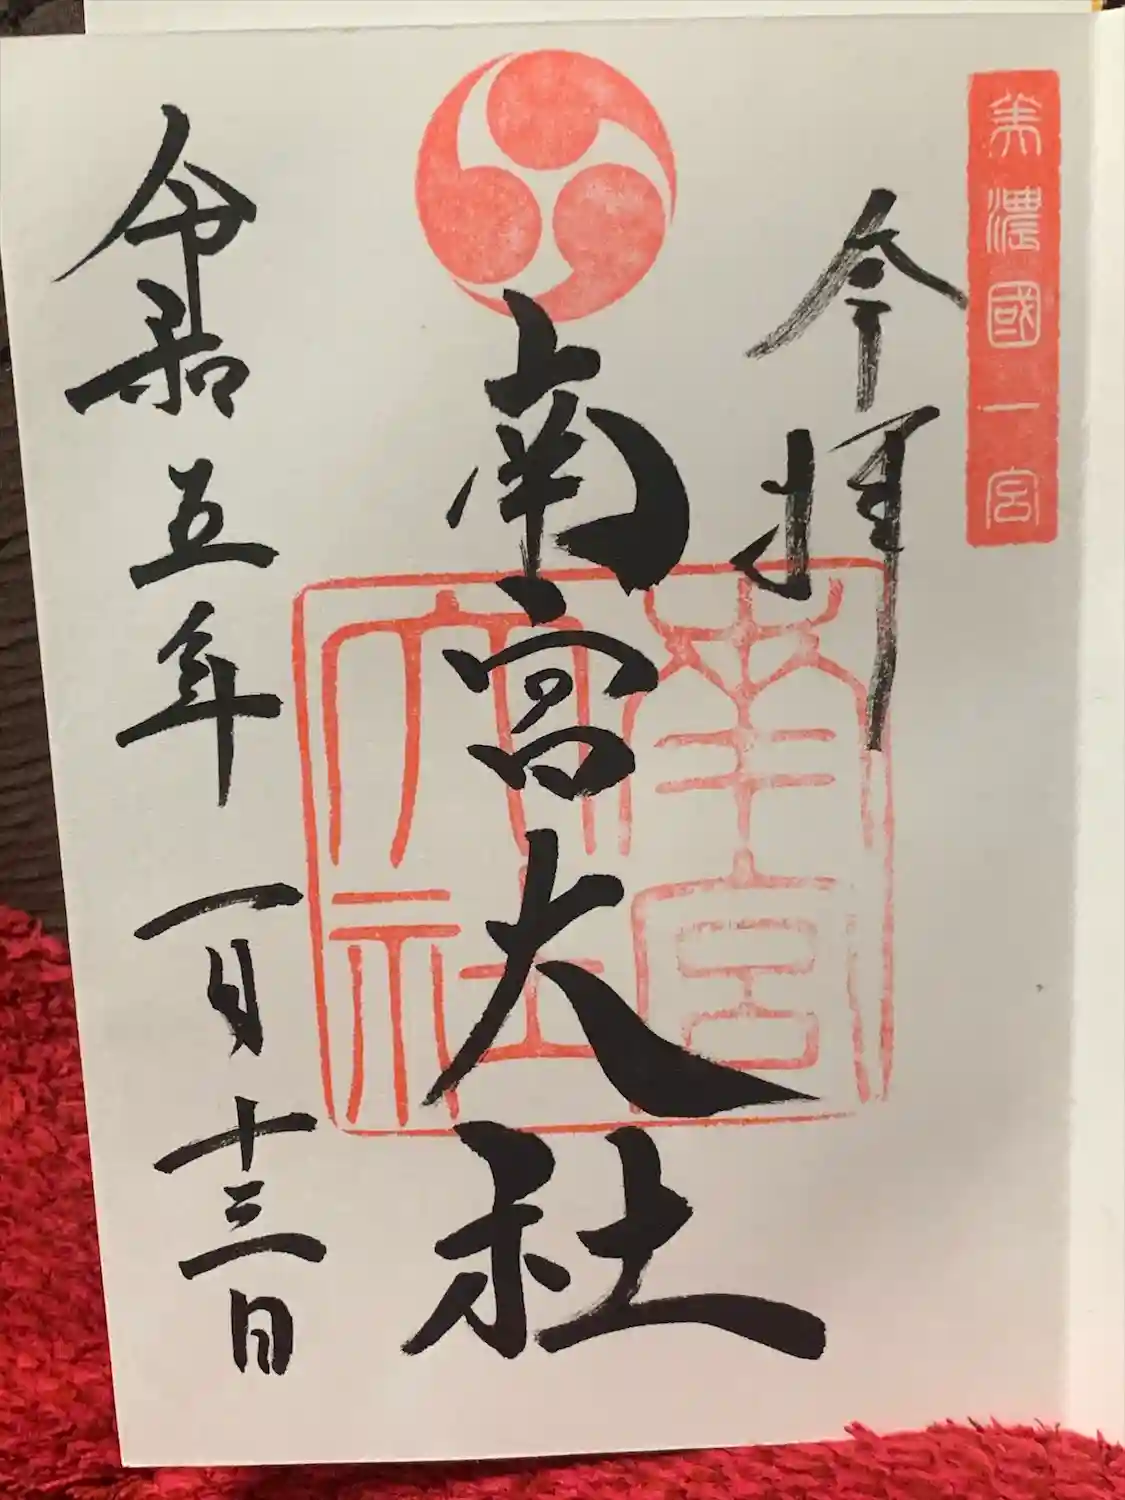 美濃國一宮
今拝
南宮大社
南宮
大社
令和五年 一月十三日